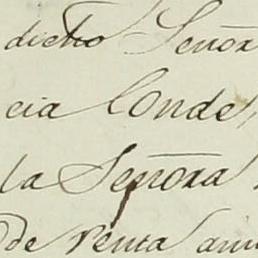 dicho Señor
cia Conde,
la Señora
de renta anu